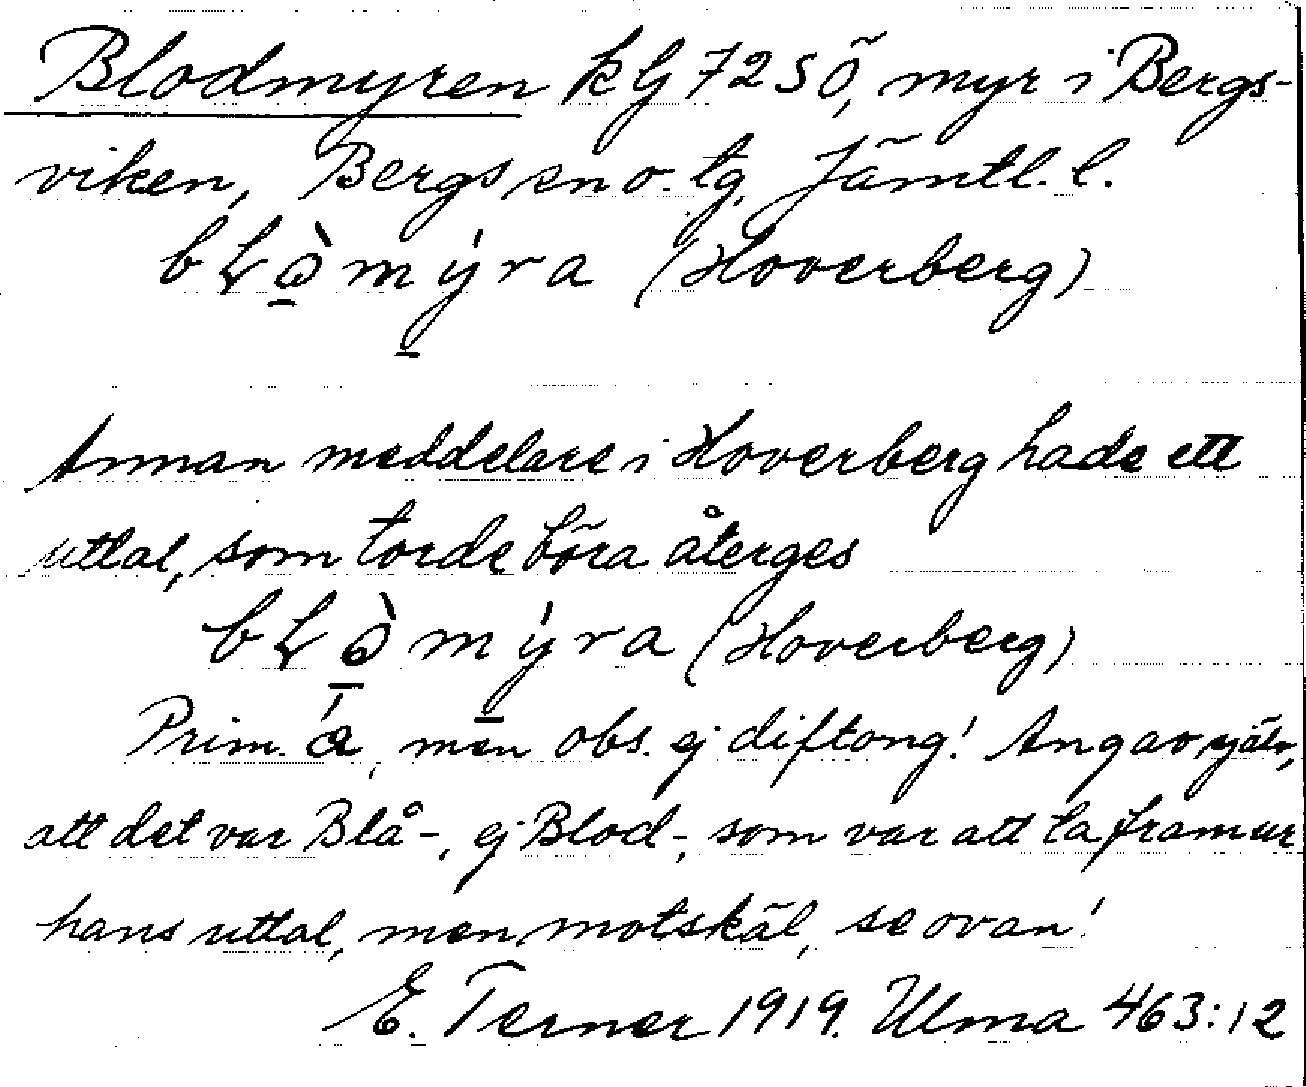 Blodmyren kG 72 SÖ, myr i Bergs-
viken, Bergs sn o. tg. Jämtl. l.
bʟɷ̱̀mý̱ra (Hoverberg)
Annan meddelare i Hoverberg hade ett
uttal, som torde böra återges
bʟɷ̱̀mý̱ra (Hoverberg)
Prim. á, men obs. ej diftong! Angav själv,
att det var Blå-, ej Blod-, som var att ta fram ur
hans uttal, men motskäl, se ovan!
E. Terner 1919. Ulma 463:12